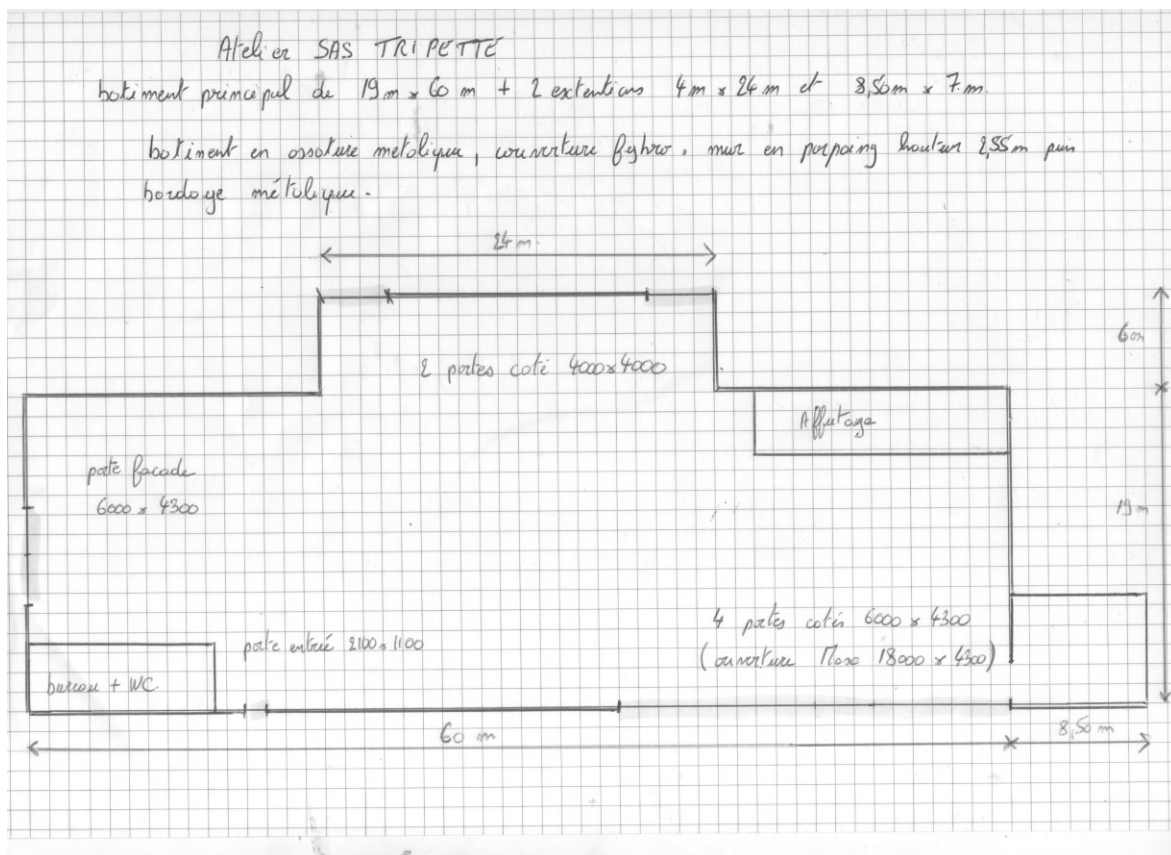 Atelier SAS TRIPETTE
batiment principal de 19m x 60 m + 2 extentions 4m x 24m et 8,50m x 7m.
batiment en ossature metalique, couverture fybro. mur en parpaing hauteur 2,55m puis
bardage métalique.
24 m
6m
2 portes coté 4000x4000
Affutage
porte facade
6000 x 4300
19m
4 portes cotés 6000 x 4300
(ouverture Maxi 18000 x 4300)
porte entrée 2100 x 1100
bureau + WC
60 m
8,50 m